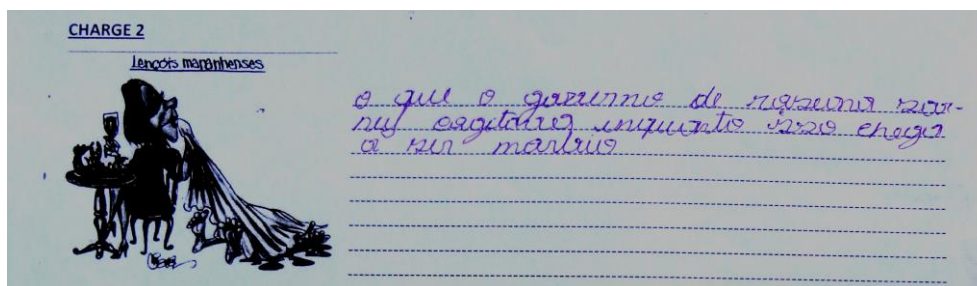 CHARGE 2
Lençois maranhenses
o que o governo de roseana sar-
ney enquanto isso chega
a ser